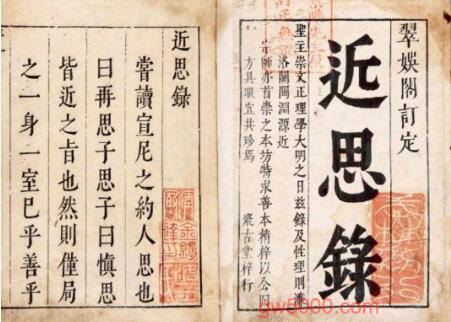 翠娛閣訂定
近思錄
聖主崇文正理學大明之日茲錄及性理則濂
洛關閩淵源近
宗師亦首崇之本坊特求善本精梓以公四
方具眼宜共珍焉
聚古堂梓行
近思錄
嘗讀宣尼之約人思也
曰再思子思子曰慎思
皆近之旨也然則僅局
之一身一室已乎善乎
gw5000.com